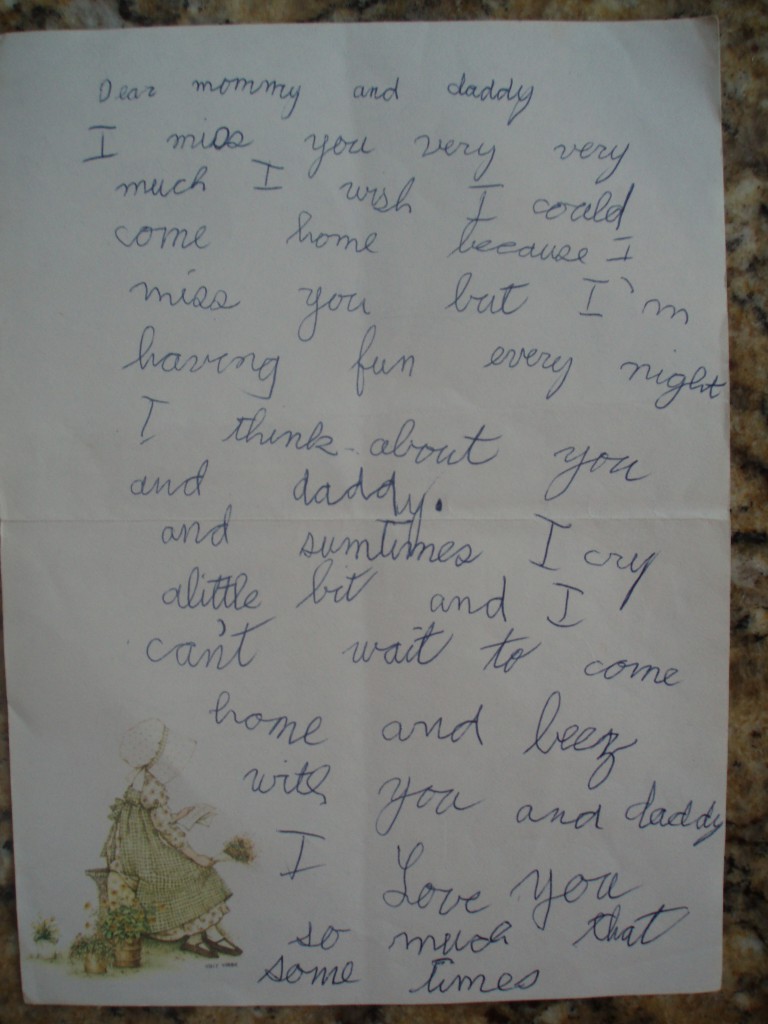 Dear mommy and daddy
I miss you very very
much I wish I could
come home because I
miss you but I'm
having fun every night
I think about you
and daddy.
and sumtimes I cry
alittle bit and I
can't wait to come
home and beez
with you and daddy
I Love you
so much that
some times